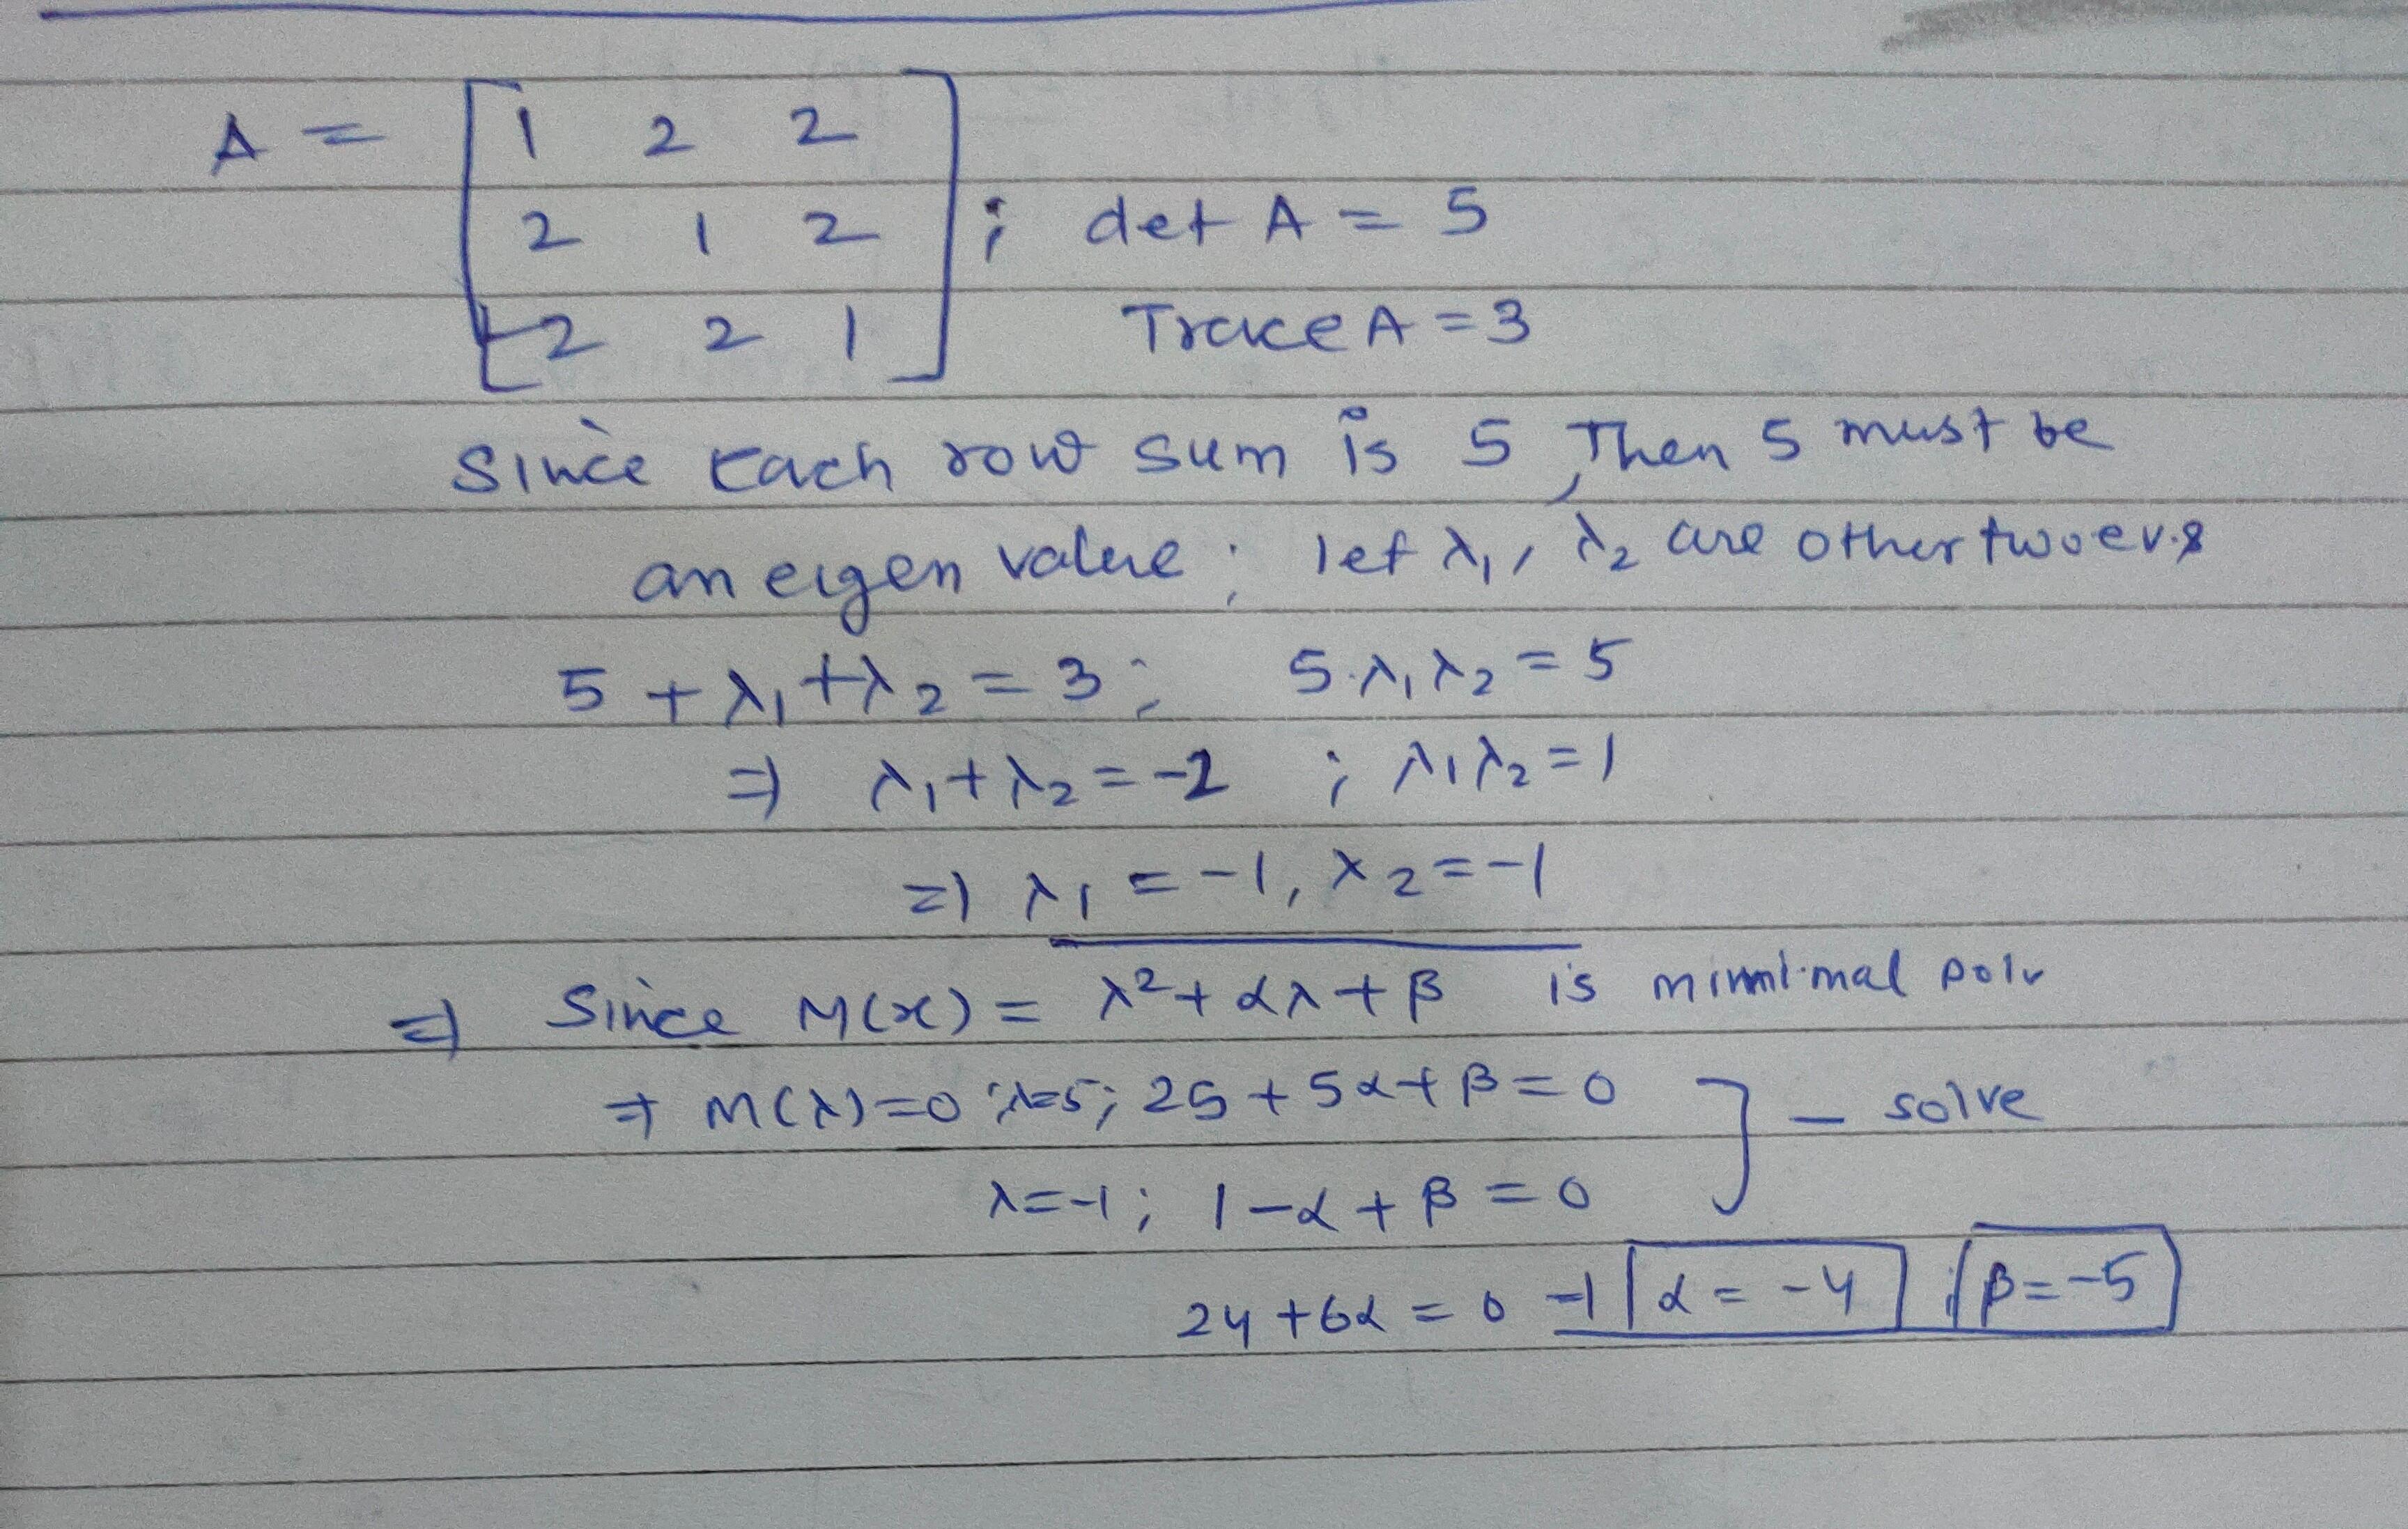 A = [ 1 2 2
2 1 2 ] ; det A = 5
2 2 1 Trace A = 3
Since Each row sum is 5, Then 5 must be
an eigen value ; let λ₁, λ₂ are other two ev.s
5 + λ₁ + λ₂ = 3 ; 5.λ₁λ₂ = 5
⇒ λ₁ + λ₂ = -2 ; λ₁λ₂ = 1
⇒ λ₁ = -1, λ₂ = -1
⇒ Since M(x) = λ² + αλ + β is minimal poly
⇒ M(λ) = 0 ; λ=5 ; 25 + 5α + β = 0
} — solve
λ = -1 ; 1 - α + β = 0
24 + 6α = 0 ⇒ α = -4, β = -5